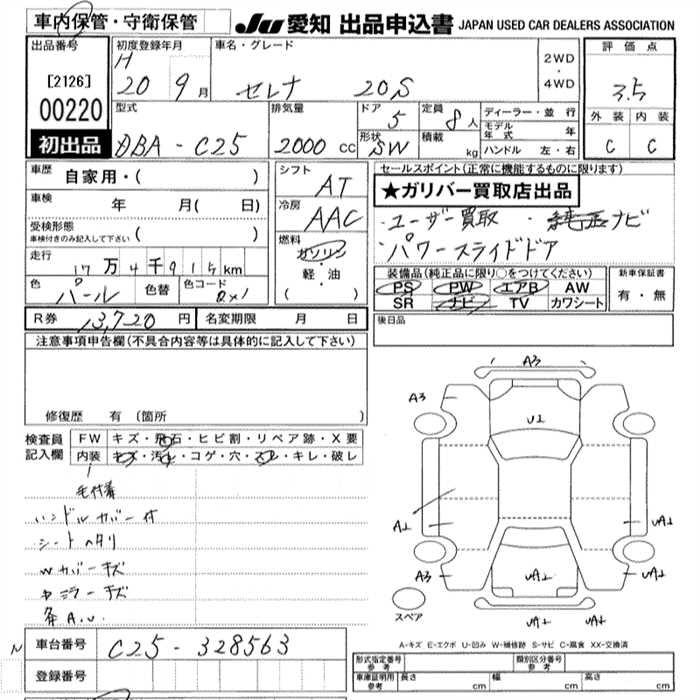 車内保管・守衛保管
JU 愛知 出品申込書 JAPAN USED CAR DEALERS ASSOCIATION
出品番号 [2126] 00220 初出品
初度登録年月 H 20 9月
車名・グレード セレナ 20S
2WD・4WD
評価点 3.5
外装 C 内装 C
型式 DBA-C25
排気量 2000cc
ドア 5
形状 SW
定員 8人
積載 kg
ディーラー・並行
モデル年式 年
ハンドル 左・右
車歴 自家用・( )
車検 年 月( 日)
受検形態 車検付きのみ記入して下さい ( )
走行 17万4千915km
色 パール 色替 色コード QX1
シフト AT
冷房 AAC
燃料 ガソリン・軽・油 ( )
セールスポイント(正常に機能するものに限ります)
★ガリバー買取店出品
・ユーザー買取 ・純正ナビ
・パワースライドドア
装備品(純正品に限り○をつけてください)
PS PW エアB AW
SR ナビ TV カワシート
新車保証書 有・無
R券 13,720円 名変期限 月 日
後日品
注意事項申告欄(不具合内容等は具体的に記入して下さい)
修復歴 有 (箇所
検査員記入欄
FW キズ・飛石・ヒビ割・リペア跡・X要
内装 キズ・汚れ・コゲ・穴・スレ・キレ・破レ
毛付着
ハンドルカバー付
シートヘタリ
Wカバーキズ
ミラーキズ
A.U.
A3
A3
U1
A2
UA2
A3
UA2
UA2
UA2 UA2
スペア
A-キズ E-エクボ U-凹み W-補修跡 S-サビ C-腐食 XX-交換済
N
車台番号 C25-328563
登録番号
形式指定番号参考 類別区分番号参考
車庫証明用参考 長さ cm 幅 cm 高さ cm